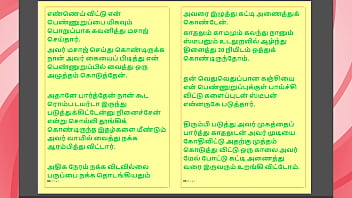 எண்ணெய் விட்டு என்
பெண்ணுறுப்பை மிகவும்
பொறுப்பாக கவனித்து மசாஜ்
செய்தார்.
அவர் மசாஜ் செய்து கொண்டிருக்க
நான் அவர் கையைப் பிடித்து என்
பெண்ணுறுப்பில் வைத்து ஒரு
அழுத்தம் கொடுத்தேன்.
அதானே பார்த்தேன் நான் கூட
ரொம்ப டயர்டா இருந்து
படுத்துக்கிட்டேன்னு நினைச்சேன்
என்று சொல்லி தூங்கிக்
கொண்டிருந்த இதழ்களை மீண்டும்
அவர் வாயில் வைத்து நக்க
ஆரம்பித்து விட்டார்.
அதிக நேரம் நக்க விடவில்லை
பருப்பை நக்க தொடங்கியதும்
அவரை இழுத்து கட்டி அணைத்துக்
கொண்டேன்.
காதலும் காமமும் கலந்து நானும்
ஸ்டீபனும் உடலுறவில் ஆழ்ந்து
திளைத்து 20 நிமிடம் ஓத்துக்
கொண்டிருந்தோம்.
தன் வெதுவெதுப்பான கஞ்சியை
என் பெண்ணுறுப்புக்குள் பாய்ச்சி
விட்டு களைப்புடன் ஸ்டீபன்
என்னருகே படுத்தார்.
திரும்பி படுத்து அவர் முகத்தைப்
பார்த்து காதலுடன் அவர் முடியை
கோதிவிட்டு அதற்கு முத்தம்
கொடுத்து விட்டு ஒரு காலை அவர்
மேல் போட்டு கட்டி அணைத்து
வாரே இருவரும் உறங்கி விட்டோம்.